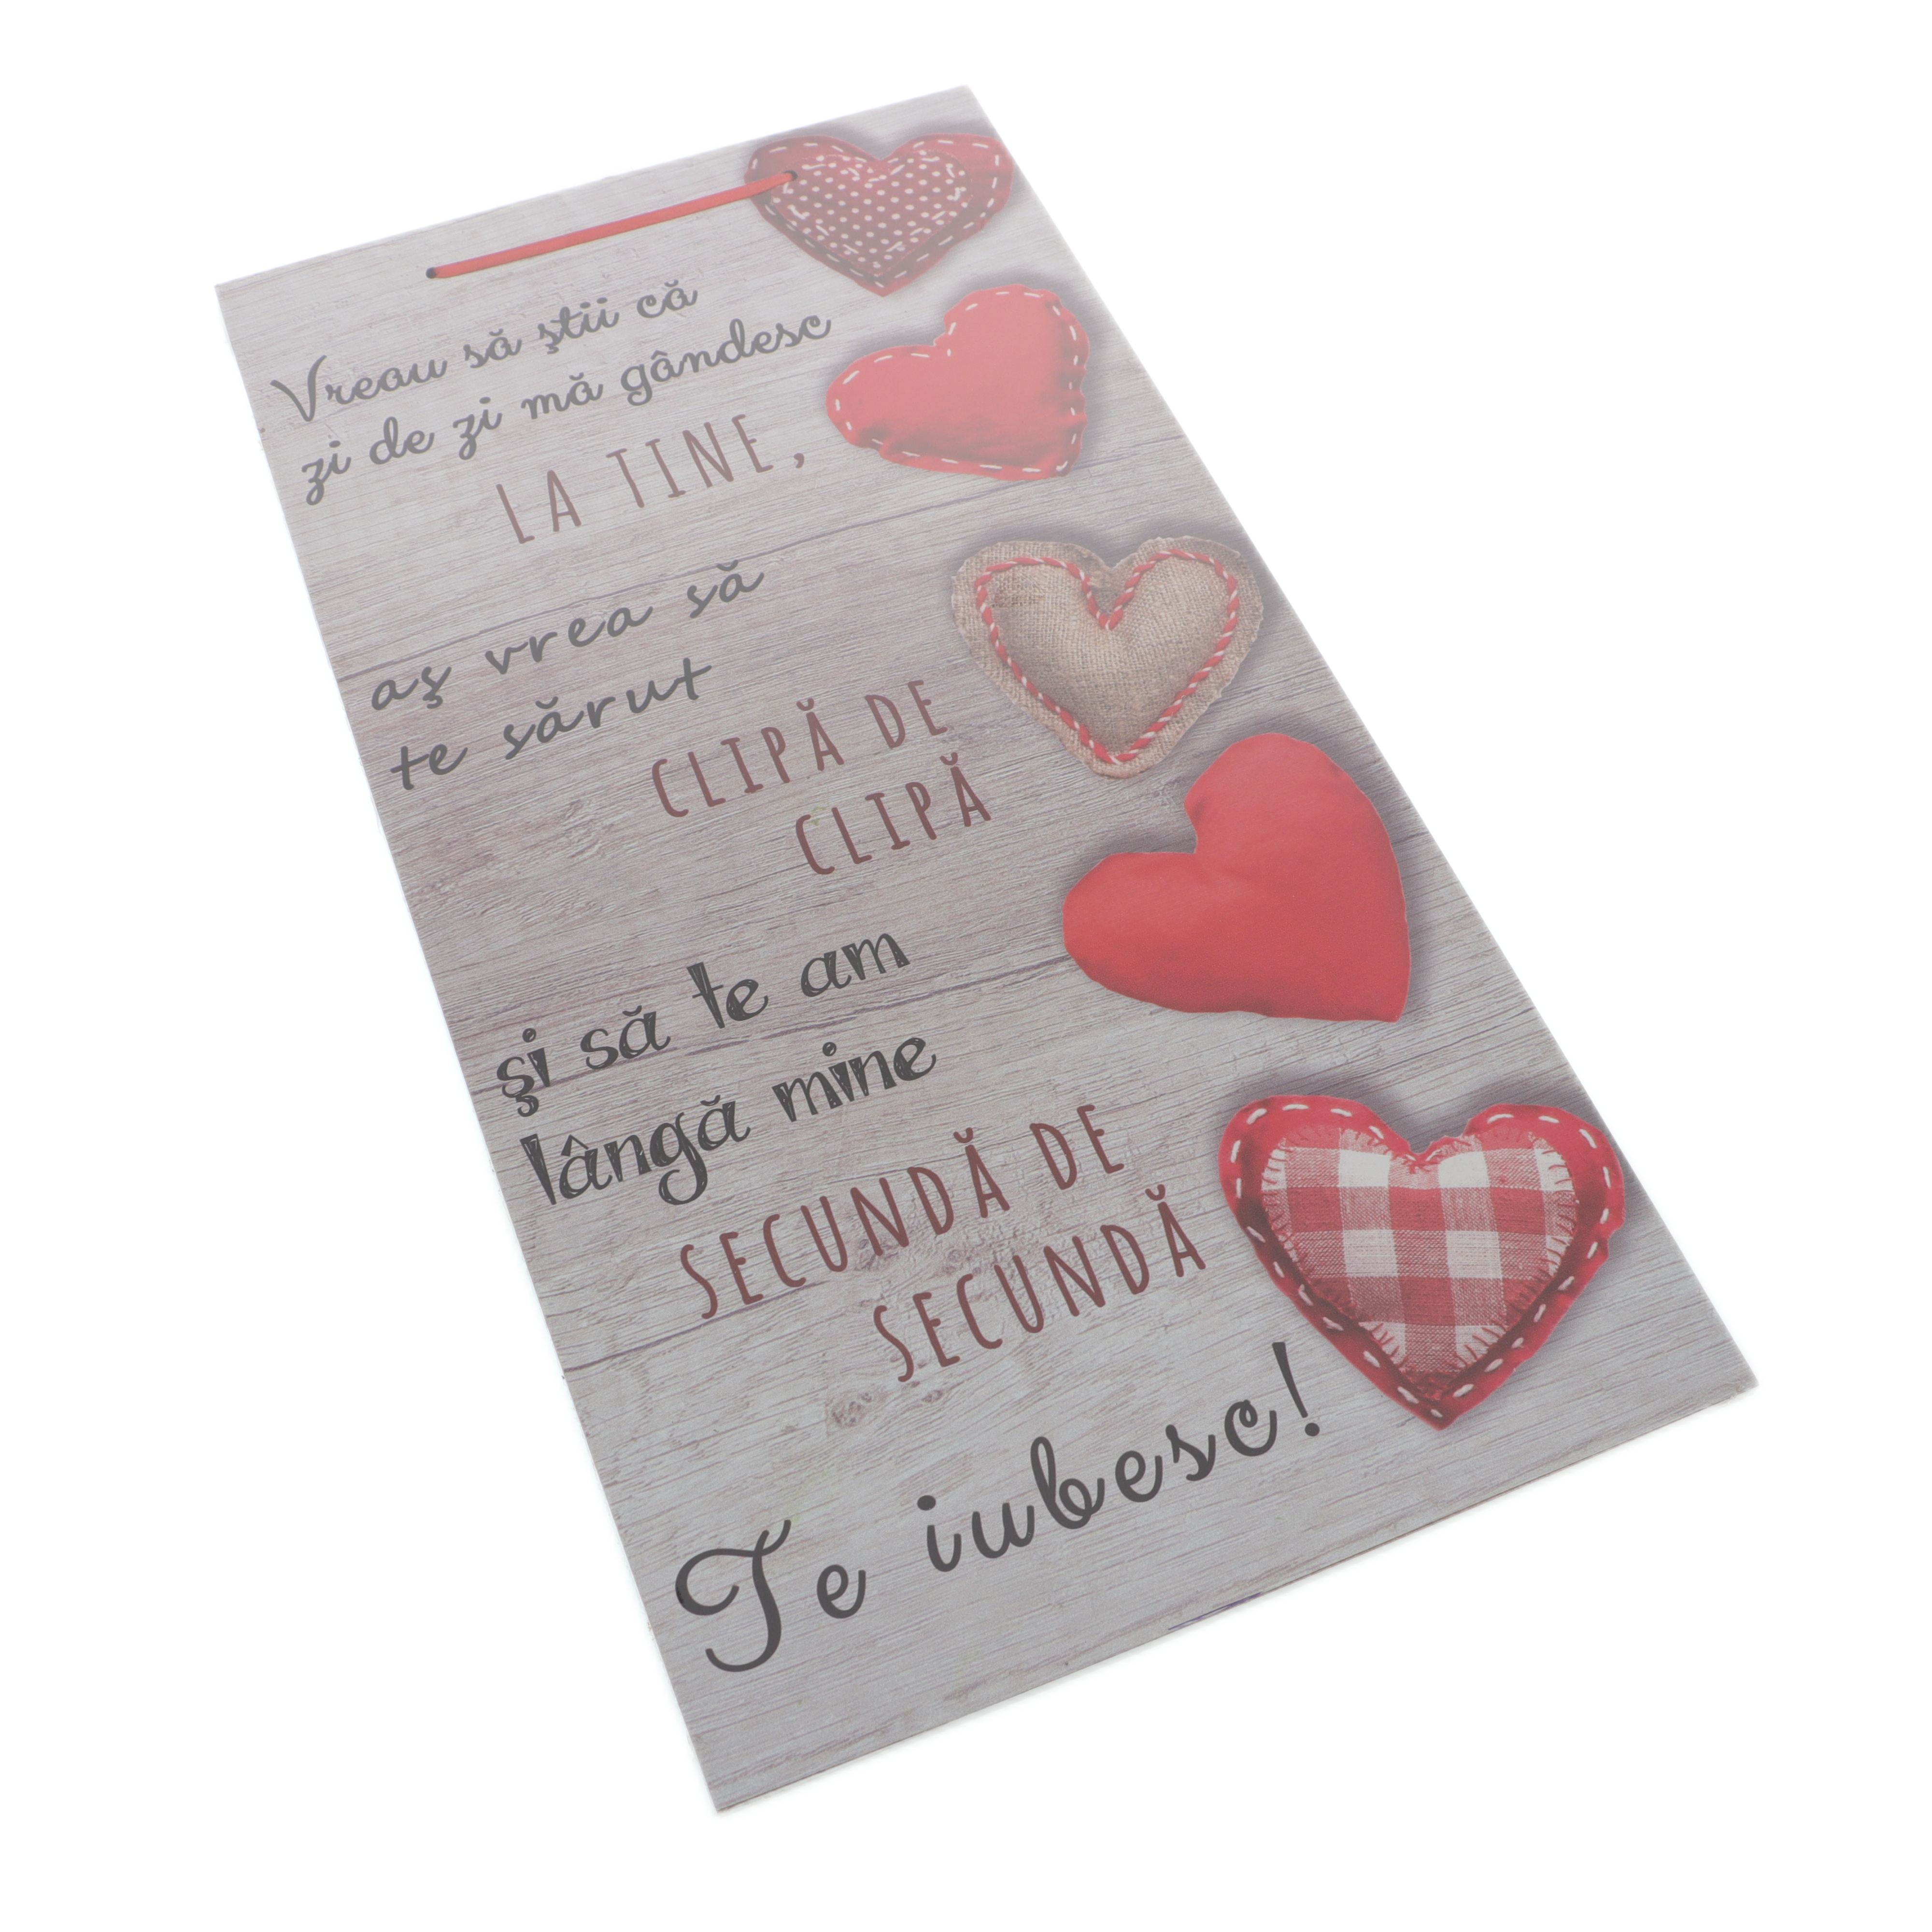 Vreau să ştii că
zi de zi mă gândesc
LA TINE,
aş vrea să
te sărut
CLIPĂ DE
CLIPĂ
şi să te am
lângă mine
SECUNDĂ DE
SECUNDĂ
Te iubesc!